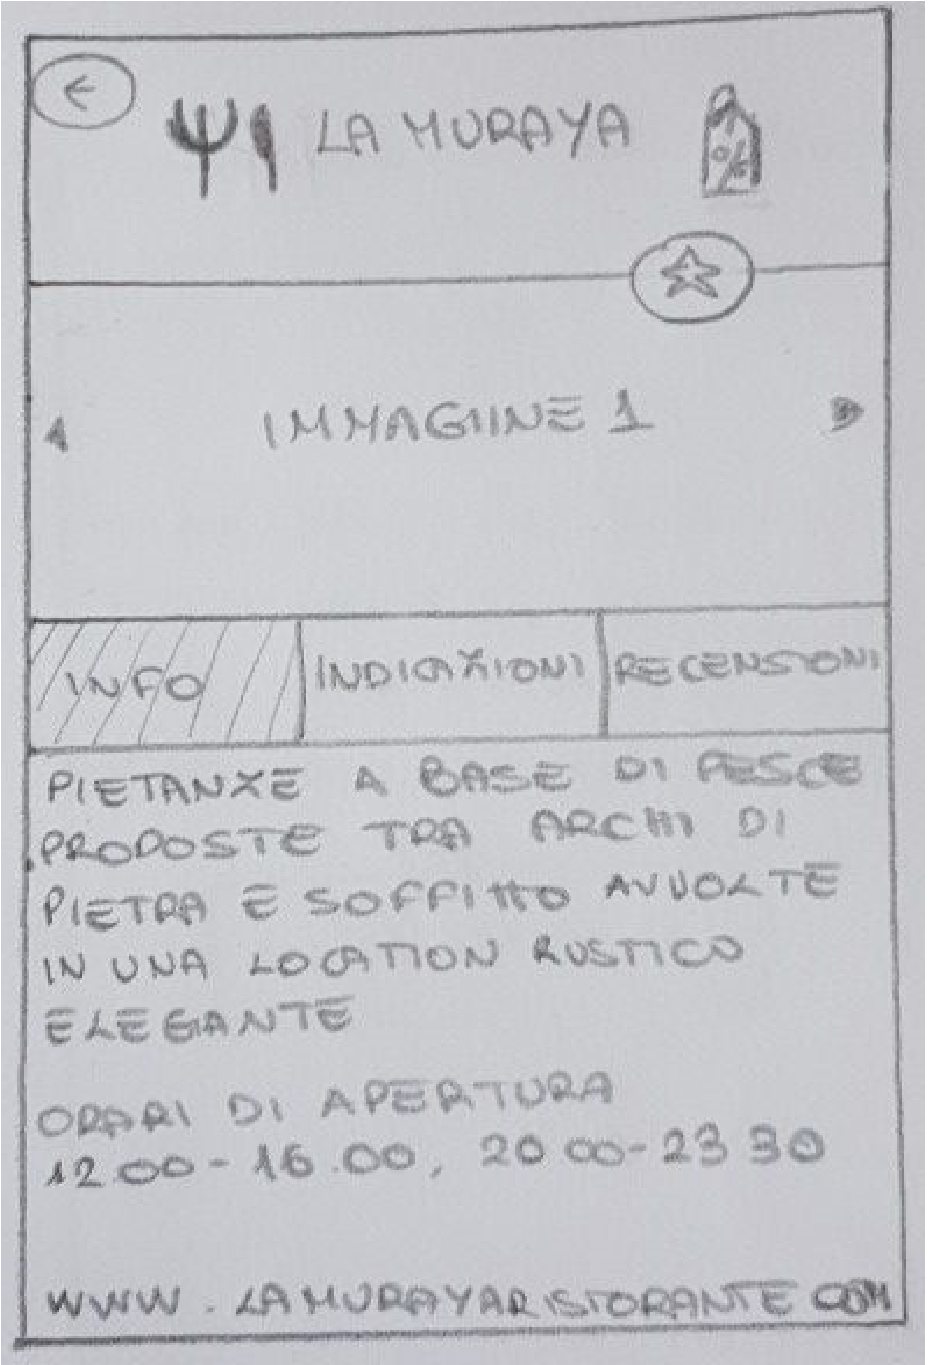 LA MURAYA
%
IMMAGIINE 1
INFO
INDICAZIONI
RECENSIONI
PIETANZE A BASE DI PESCE
PROPOSTE TRA ARCHI DI
PIETRA E SOFFITTO AVVOLTE
IN UNA LOCATION RUSTICO
ELEGANTE
ORARI DI APERTURA
12.00 - 16.00, 20 00 - 23 30
WWW.LAMURAYARISTORANTE.COM